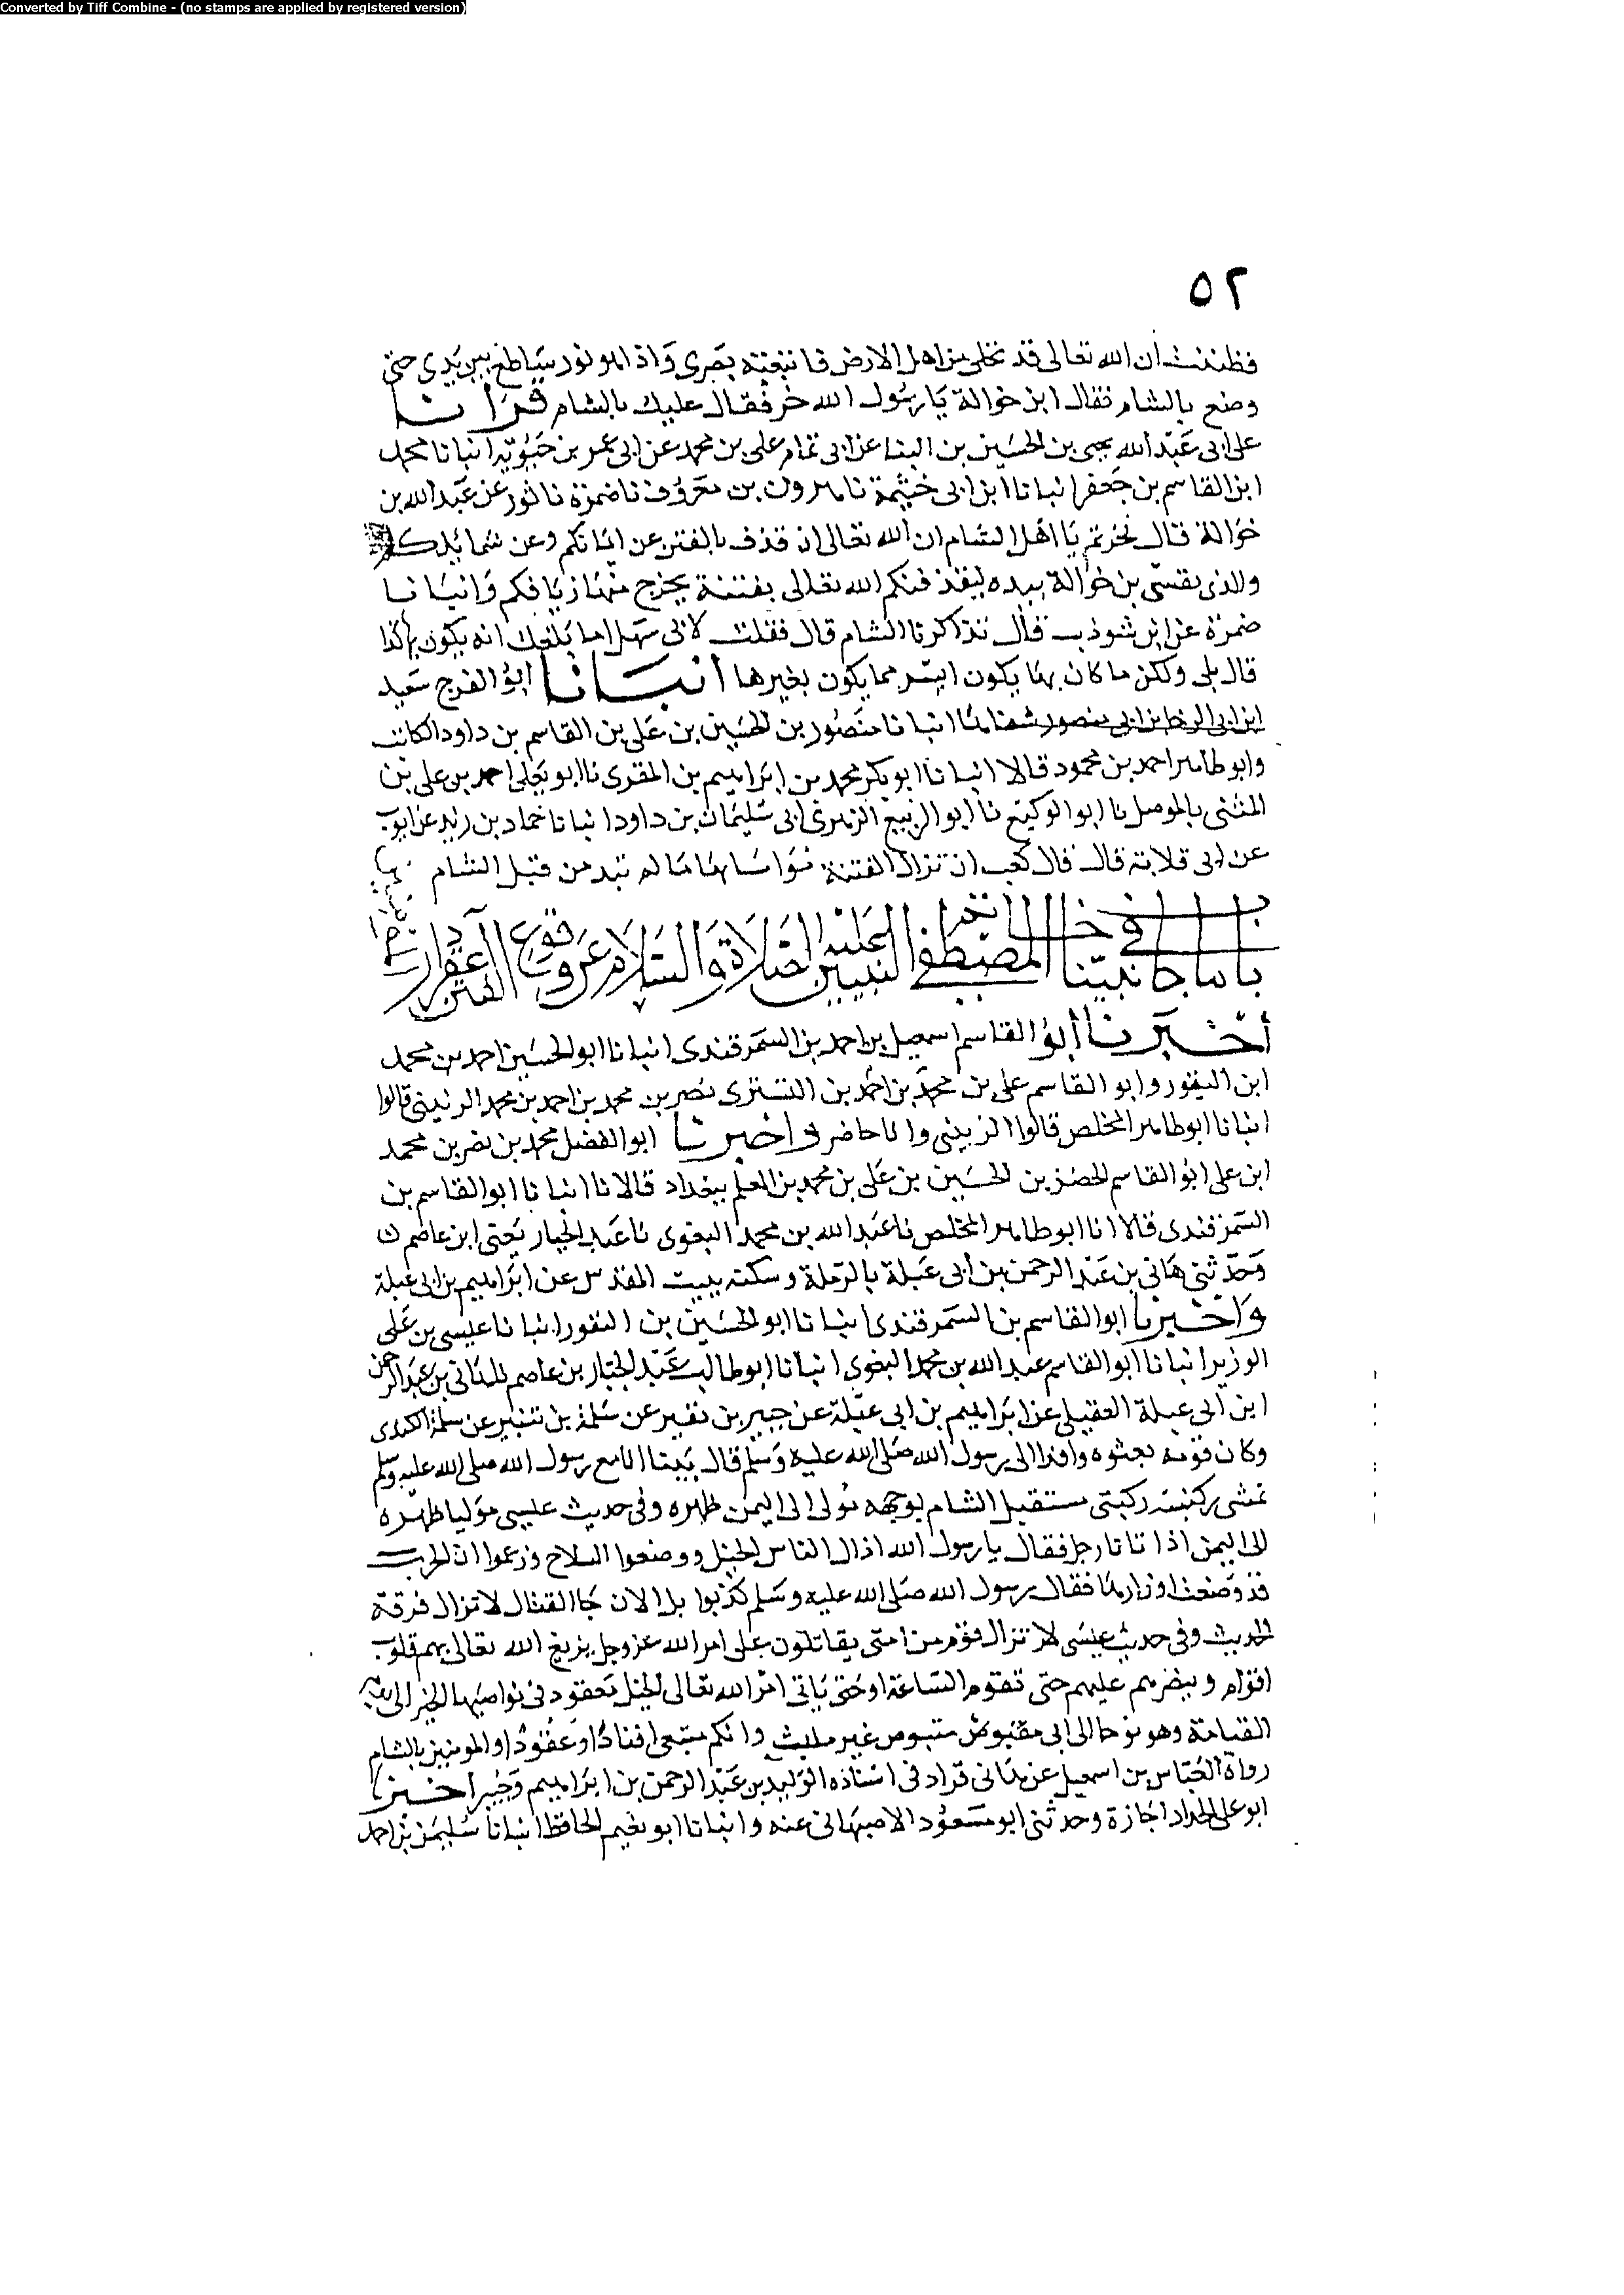 Converted by Tiff Combine - (no stamps are applied by registered version)
٥٢
فظننت ان الله تعالى قد تخلى من اهل الارض فاتبعته بصرى واذا هو نور ساطع بين يدي حتى
وضع بالشام فقال ابن حوالة يا رسول الله خر فقال عليك بالشام قرانا
على ابى عبد الله يحيى بن الحسين بن البنا عن ابى تمام على بن محمد عن ابى عمر بن حيويه انبانا محمد
ابن القاسم بن جعفر انبانا ابن ابى خيثمة نا هرون بن معروف نا ضمرة نا ثور عن عبد الله بن
حوالة قال يا اهل الشام ان الله تعالى ان قذف بالفتن عن ايمانكم وعن شمايلكم
والذى نفس بن حوالة بيده ليقذفنكم الله تعالى بفتنة يخرج منها زيافكم وانبانا
ضمرة عن ابن شوذب قال تذاكرنا الشام قال فقلت لابى سهل اما بلغك انه يكون بها كذا
قال بلى ولكن ما كان بها يكون ايسر مما يكون بغيرها انبانا ابو الفرج سعيد
ابن ابى الرجا بن ابى منصور شفاها انبانا منصور بن الحسين بن على بن القاسم بن داود الكاتب
وابو طاهر احمد بن محمود قالا انبانا ابو بكر محمد بن ابراهيم بن المقرى نا ابو يعلى احمد بن على بن
المثنى بالموصل نا ابو الوكيع نا ابو الربيع الزهرى ابى سليمان بن داود انبانا حماد بن زيد عن ايوب
عن ابى قلابة قال قال كعب ان تزال الفتنة مواسا بها ما لم تبد من قبل الشام
باب ما جا عن نبينا المصطفى خاتم النبيين عليه الصلاة والسلام عن وقوع الفتن عقر دار
أخبرنا أبو القاسم اسمعيل بن احمد بن السمرقندى انبانا ابو الحسين احمد بن محمد
ابن النقور وابو القاسم على بن محمد بن احمد بن التسترى نصر بن محمد بن احمد بن محمد الزينبى قالوا
انبانا ابو طاهر المخلص قالوا الزينبى وانا حاضر واخبرنا ابو الفضل محمد بن نصر بن محمد
ابن على ابو القاسم الخضر بن الحسين بن على بن محمد بن المعلم ببغداد قالانا انبانا ابو القاسم بن
السمرقندى قالا انا ابو طاهر المخلص نا عبد الله بن محمد البغوى نا عبد الجبار يعنى ابن عاصم
وحدثنى هانى بن عبد الرحمن بن ابى عبلة بالرملة وسكنه ببيت المقدس عن ابراهيم بن ابى عبلة
واخبرنا ابو القاسم بن السمرقندى انبانا ابو الحسين بن النقور انبانا عيسى بن على
الوزير انبانا ابو القاسم عبد الله بن محمد البغوى انبانا ابو طالب عبد الجبار بن عاصم بن عبد الرحمن
ابن ابى عبلة العقيلى عن ابراهيم بن ابى عبلة عن جبير بن نفير عن سلمة بن نفير عن سلمة الكندى
وكان قومه بعثوه وافدا الى رسول الله صلى الله عليه وسلم قال بينا انا مع رسول الله صلى الله عليه وسلم
تمشى ركبته ركبتى مستقبل الشام بوجهه مولى الى اليمن ظهره وفى حديث عيسى موليا ظهره
الى اليمن اذ اتانا رجل فقال يا رسول الله اذال الناس الخيل ووضعوا السلاح وزعموا ان الحرب
قد وضعت اوزارها فقال رسول الله صلى الله عليه وسلم كذبوا بل الان جا القتال لا تزال فرقة
الحديث وفى حديث عيسى لا تزال قوم من امتى يقاتلون على امر الله عز وجل يزيغ الله تعالى بهم قلوب
اقوام وينصرهم عليهم حتى تقوم الساعة او حتى ياتى امر الله تعالى الخيل معقود فى نواصيها الخير الى يوم
القيامة وهو يوحا الى انى مقبوض غير ملبث وانكم متبعى افنادا وعقر دار المومنين بالشام
رواة العباس بن اسمعيل عن هانى فزاد فى اسناده الوليد بن عبد الرحمن بن ابراهيم وجبير اخبرنا
ابو على الحداد اجازة وحدثنى ابو مسعود الاصبهانى عنه وانبانا ابو نعيم الحافظ انبانا سليمن بن احمد